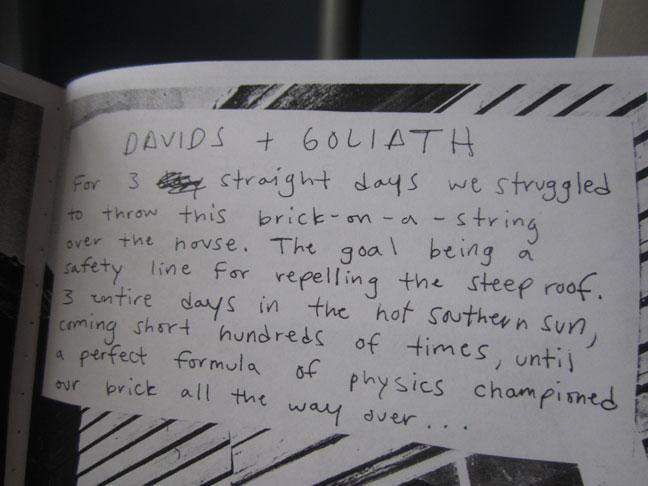 DAVIDS + GOLIATH
For 3 straight days we struggled
to throw this brick-on-a-string
over the house. The goal being a
safety line for repelling the steep roof.
3 entire days in the hot southern sun,
coming short hundreds of times, until
a perfect formula of physics championed
our brick all the way over...